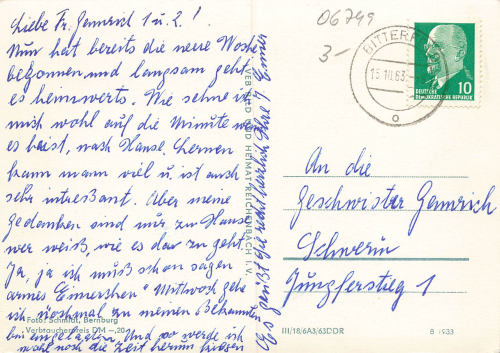 Liebe Fr. Gemrich 1 u. 2!
Nun hat bereits die neue Woche
begonnen, und langsam geht
es heimwerts. Wie sehne ich
mich wohl auf die Minute wo
es heist, nach Hause. Lernen
kann mann viel u. ist auch
sehr interessant. Aber meine
Gedanken sind nur zu Hause
wer weiß, wie es da zu geht.
Ja, ja ich muß schon sagen
armes Eimerchen" Mittwoch gehe
ich nochmal zu meinen Bekannten
bin eingeladen. Und so werde ich
wohl noch die Zeit herum kriegen
Es grüßt Sie recht herzlich Ihre J. Eimer
Foto: Schmidt, Bernburg
Verbraucherpreis DM -,20
VEB BILD UND HEIMAT REICHENBACH I. V.
06749
3-
BITTERF
15.10.63
DEUTSCHE
DEMOKRATISCHE REPUBLIK
10
An die
Geschwister Gemrich
Schwerin
Jungfernstieg 1
III/18/6A3/63DDR
B 1933